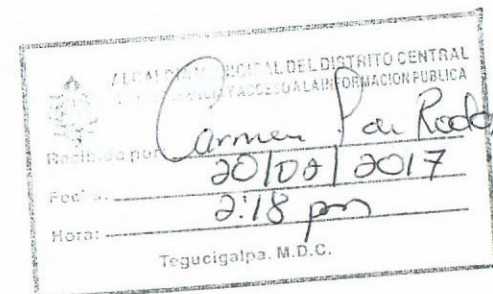 ALCALDIA MUNICIPAL DEL DISTRITO CENTRAL
Y ACCESO A LA INFORMACION PUBLICA
Recibido por Carmen P de Rodo
Fecha: 20/02/2017
Hora: 2:18 pm
Tegucigalpa, M.D.C.